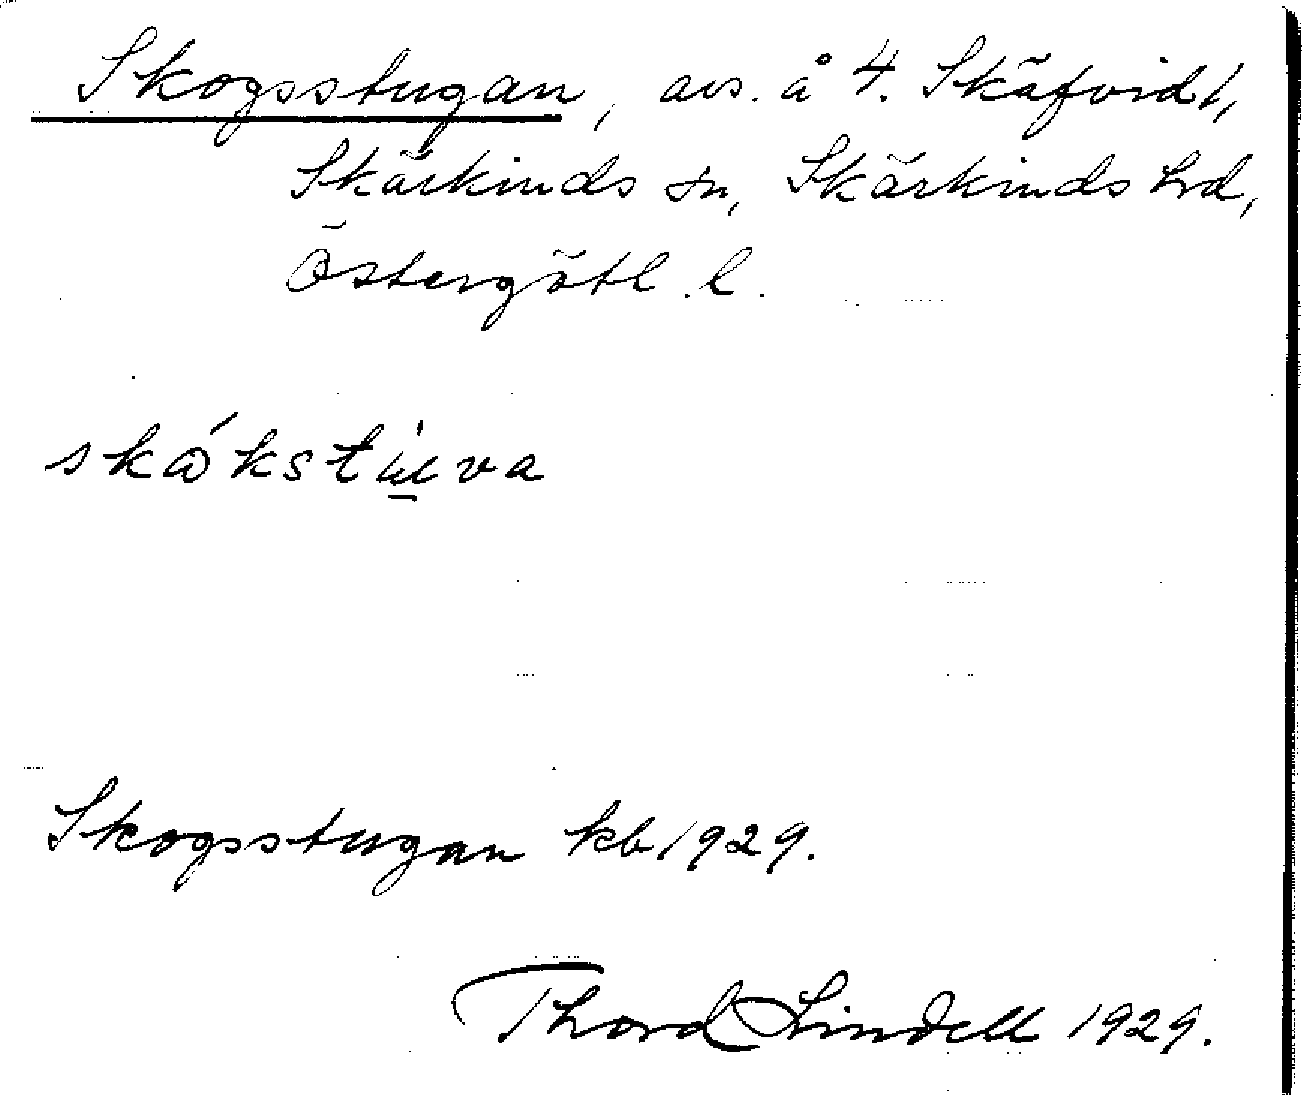 Skogsstugan, avs. å 4. Skäfvid 1,
Skärkinds sn, Skärkinds hd,
Östergötl. l.
skákstu̱va
Skogsstugan kb 1929.
Thord Lindell 1929.